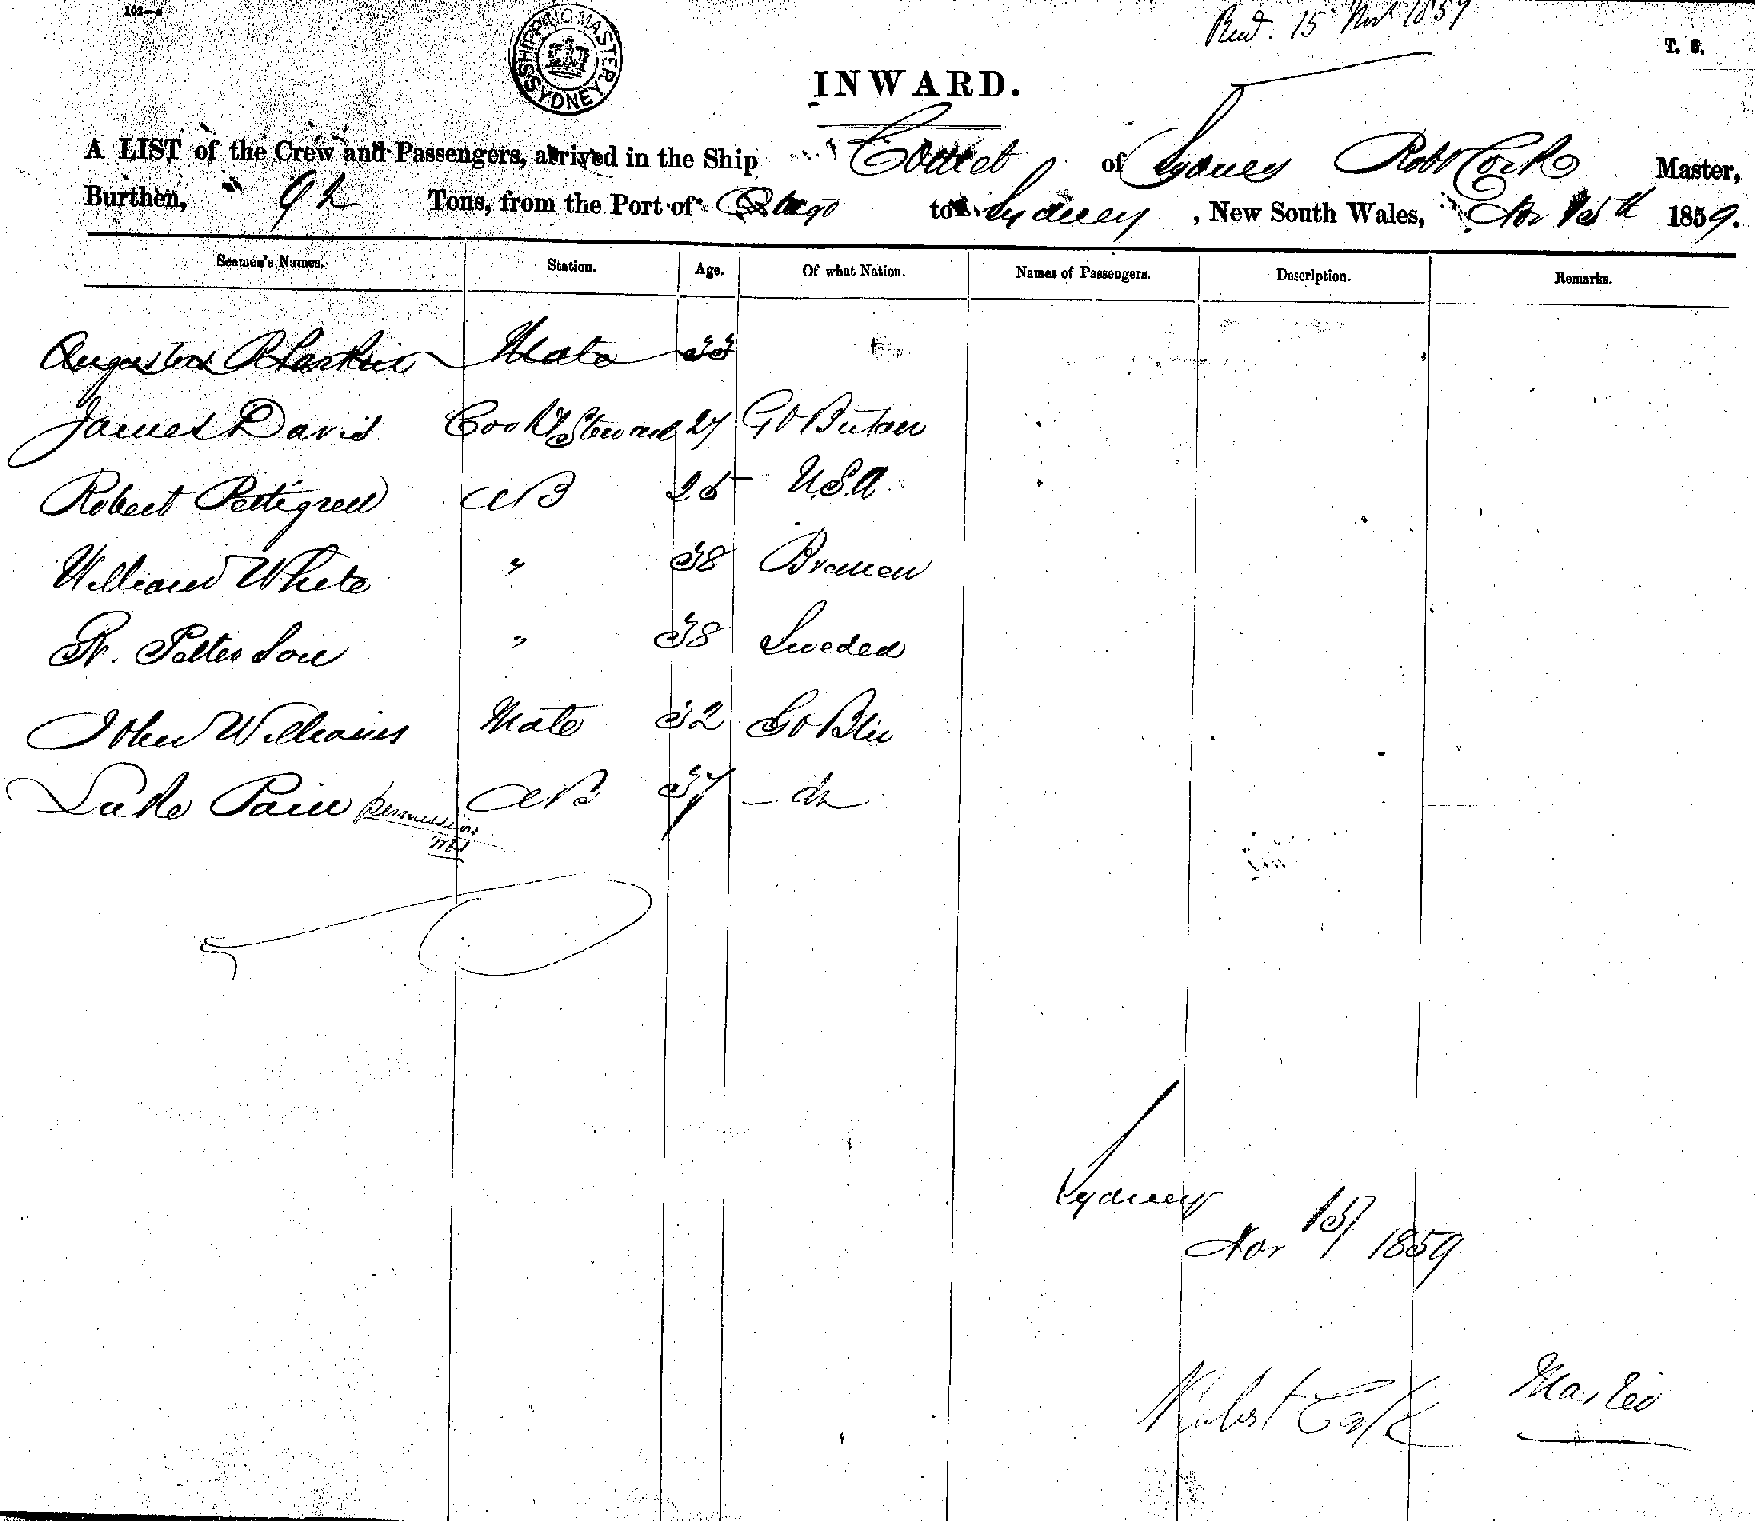 102—
SHIPPING MASTER SYDNEY
Recd. 15 Nov 1859
T. S.
INWARD.
A LIST of the Crew and Passengers, arrived in the Ship Comet of Sydney Robt Cork Master,
Burthen, 92 Tons, from the Port of Otago to Sydney, New South Wales, Nov 15th 1859.
Seamen's Names. Station. Age. Of what Nation. Names of Passengers. Description. Remarks.
Mate 33
James Davis Cook & Steward 27 Gt Britain
Robert Pettigrew AB 25 U.S.A.
William White " 38 Bremen
Patterson " 38 Sweden
John Williams Mate 32 Gt Btn
Luke Pain AB 37 — do —
Sydney
Nov 15/ 1859
Robert Cork Master